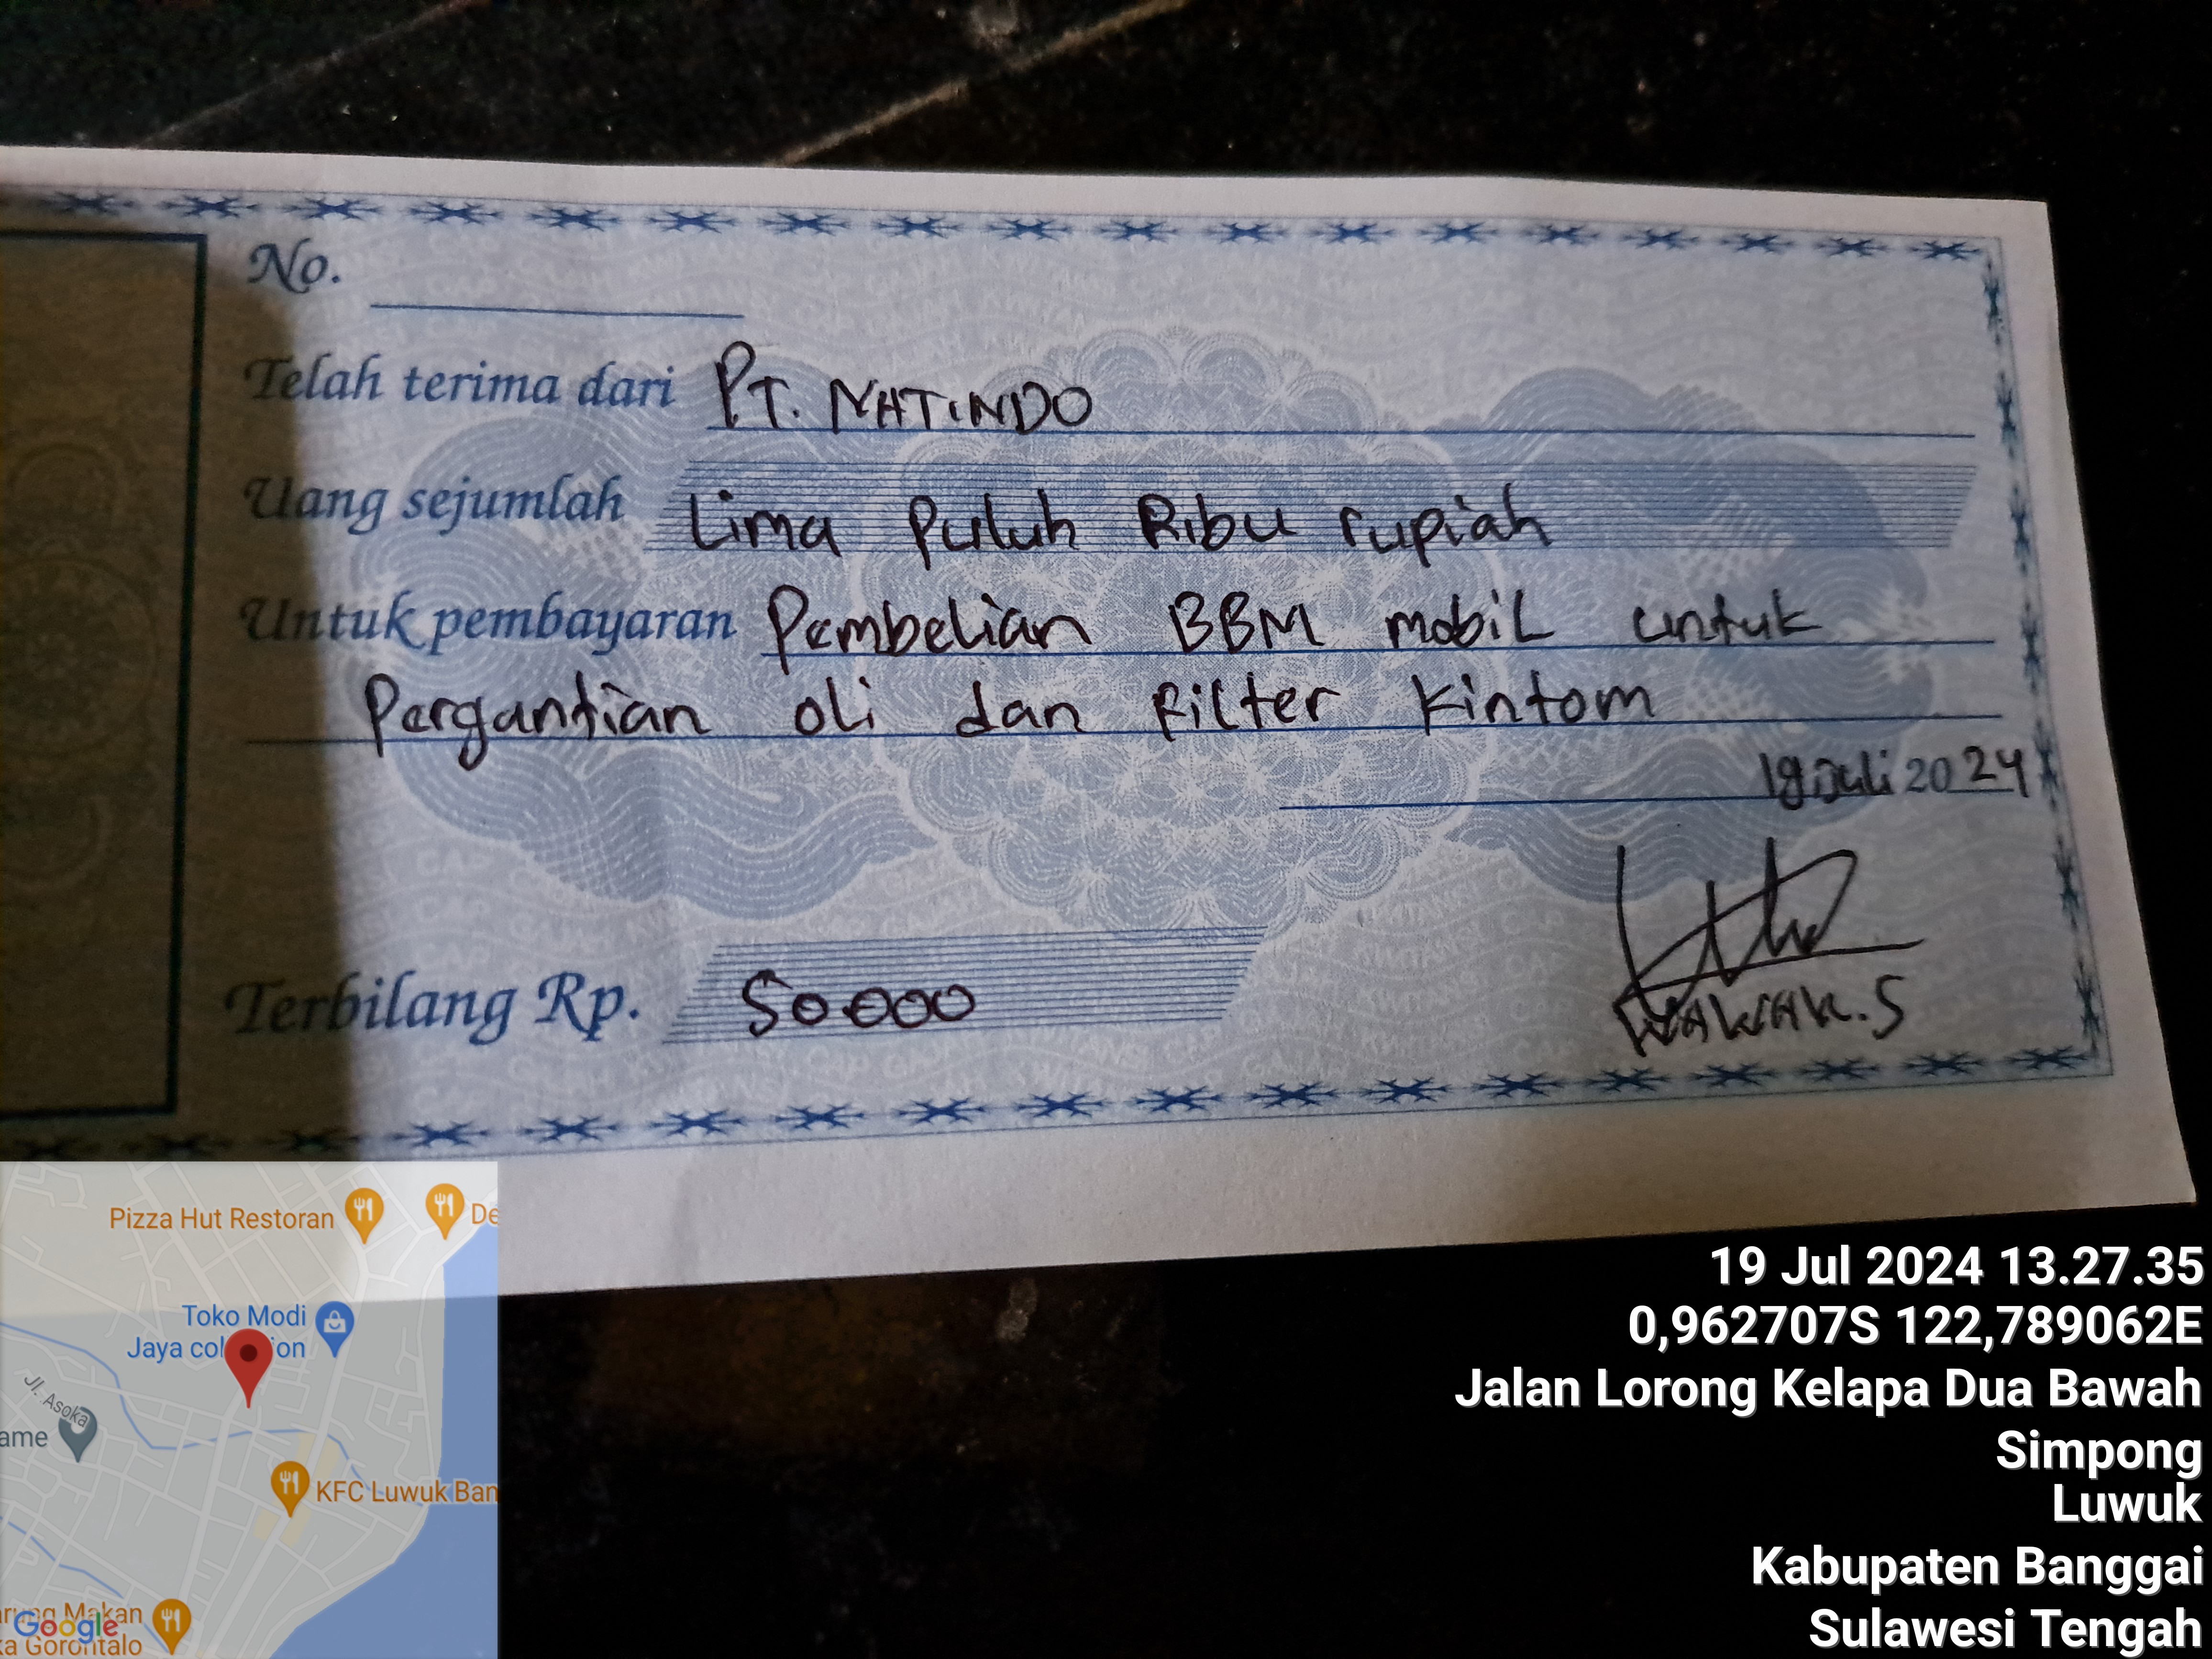 No.
Telah terima dari PT. NATINDO
Uang sejumlah Lima Puluh Ribu rupiah
Untuk pembayaran Pembelian BBM mobil untuk
Pergantian oli dan Filter Kintom
19 Juli 2024
Terbilang Rp. 50.000
Pizza Hut Restoran
De
Toko Modi
Jaya
Jl. Asoka
ame
KFC Luwuk Ban
Makan
Google
Gorontalo
19 Jul 2024 13.27.35
0,962707S 122,789062E
Jalan Lorong Kelapa Dua Bawah
Simpong
Luwuk
Kabupaten Banggai
Sulawesi Tengah